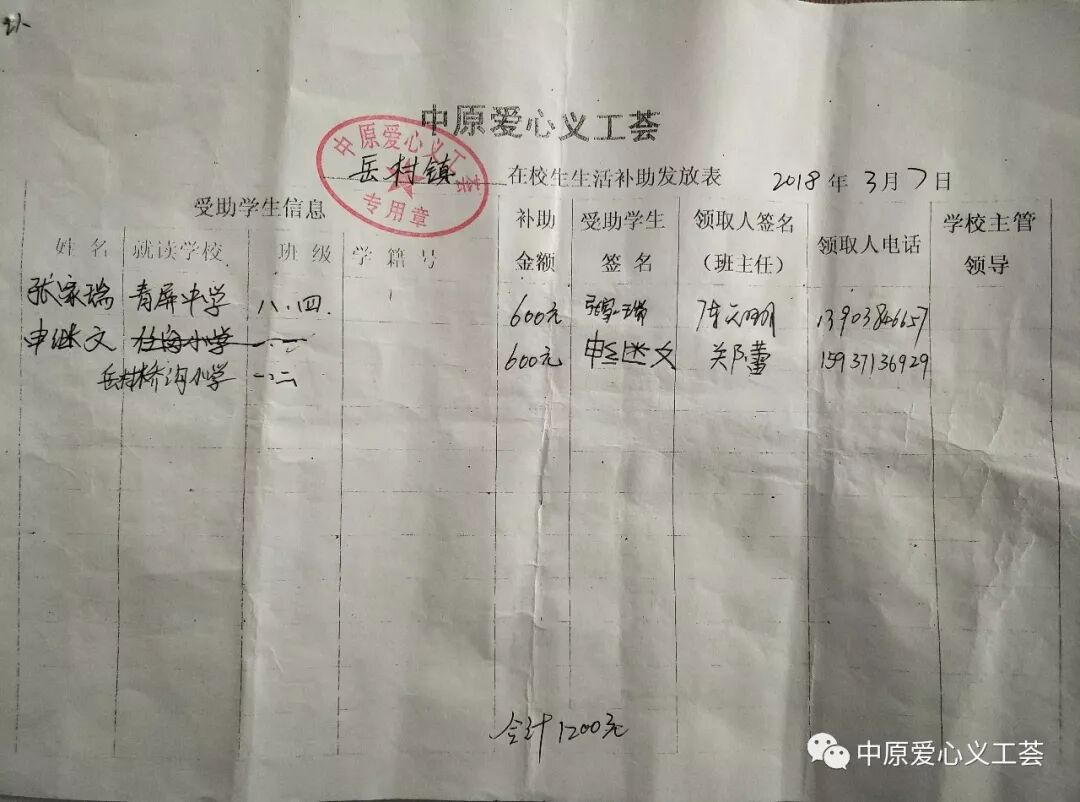 中原爱心义工荟
中原爱心义工荟
专用章
岳村镇 在校生生活补助发放表 2018年3月7日
受助学生信息 补助金额 受助学生签名 领取人签名（班主任） 领取人电话 学校主管领导
姓名 就读学校 班级 学籍号
张家瑞 青屏中学 八.四. 600元 张家瑞 13903846657
申继文 小学 一.一 600元 申继文 15937136929
岳村桥沟小学 一.二
合计1200元
中原爱心义工荟